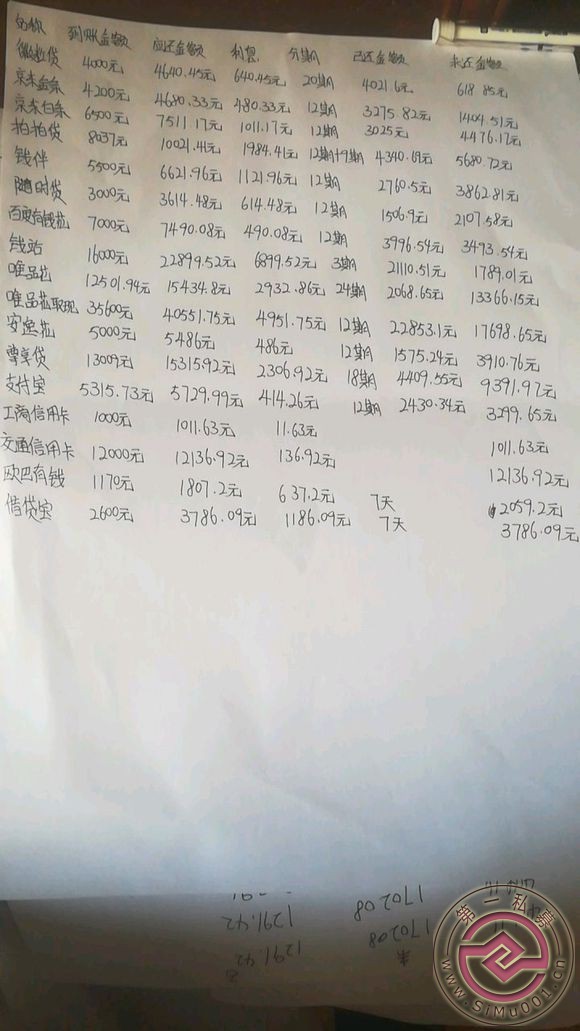 名称 到账金额 应还金额 利息 分期 已还金额 未还金额
微粒贷 4000元 4640.45元 640.45元 20期 4021.6元 618.85元
京东金条 4200元 4680.33元 480.33元 12期 3275.82元 1404.51元
京东白条 6500元 7511.17元 1011.17元 12期 3025元 4476.17元
拍拍贷 8037元 10021.41元 1984.41元 12期+9期 4340.69元 5680.72元
钱伴 5500元 6621.96元 1121.96元 12期 2760.5元 3862.81元
随时贷 3000元 3614.48元 614.48元 12期 1506.9元 2107.58元
百度有钱花 7000元 7490.08元 490.08元 12期 3996.54元 3493.54元
钱站 16000元 22899.52元 6899.52元 3期 21110.51元 1789.01元
唯品花 12501.94元 15434.8元 2932.86元 24期 2068.65元 13366.15元
唯品花取现 35600元 40551.75元 4951.75元 12期 22853.1元 17698.65元
安逸花 5000元 5486元 486元 12期 1575.24元 3910.76元
尊享贷 13009元 15315.92元 2306.92元 18期 4409.55元 9391.97元
支付宝 5315.73元 5729.99元 414.26元 12期 2430.34元 3299.65元
工商信用卡 1000元 1011.63元 11.63元 1011.63元
交通信用卡 12000元 12136.92元 136.92元 12136.92元
欧巴有钱 1170元 1807.2元 637.2元 7天 2059.2元
借贷宝 2600元 3786.09元 1186.09元 7天 3786.09元
170208
1291.42
170208
1291.42
第一私募
www.simu001.cn